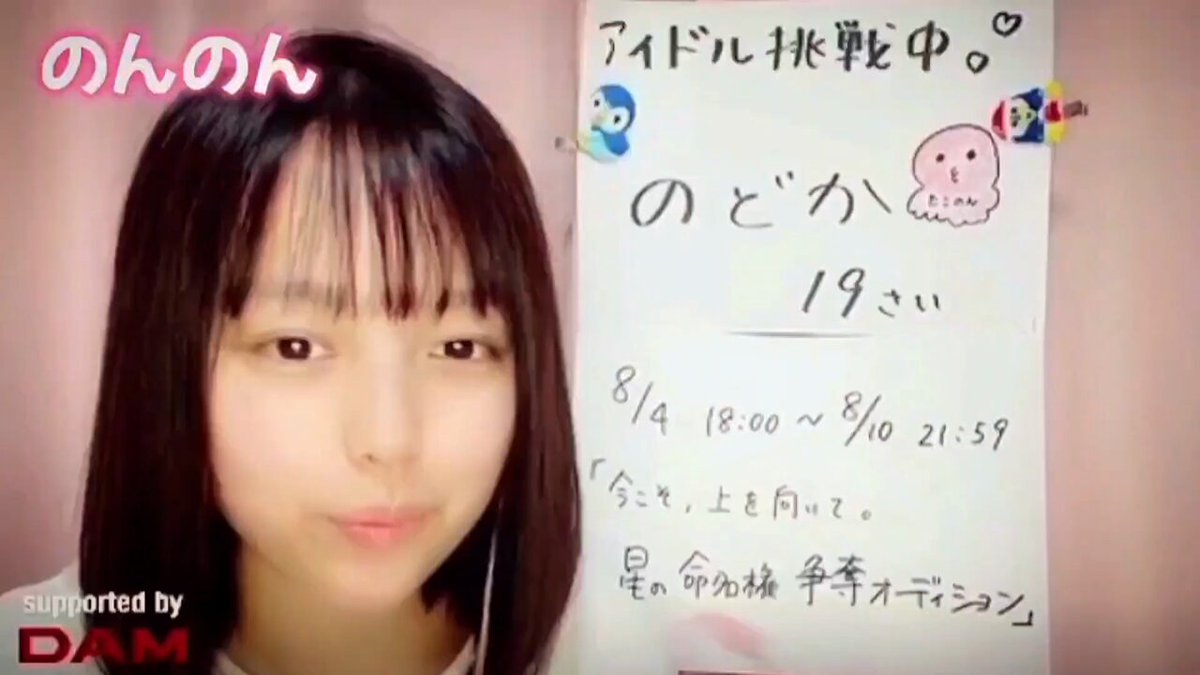 のんのん
アイドル挑戦中。
のどか
たこのん
19さい
8/4 18:00～8/10 21:59
「今こそ、上を向いて。
星の命名権争奪オーディション」
supported by
DAM